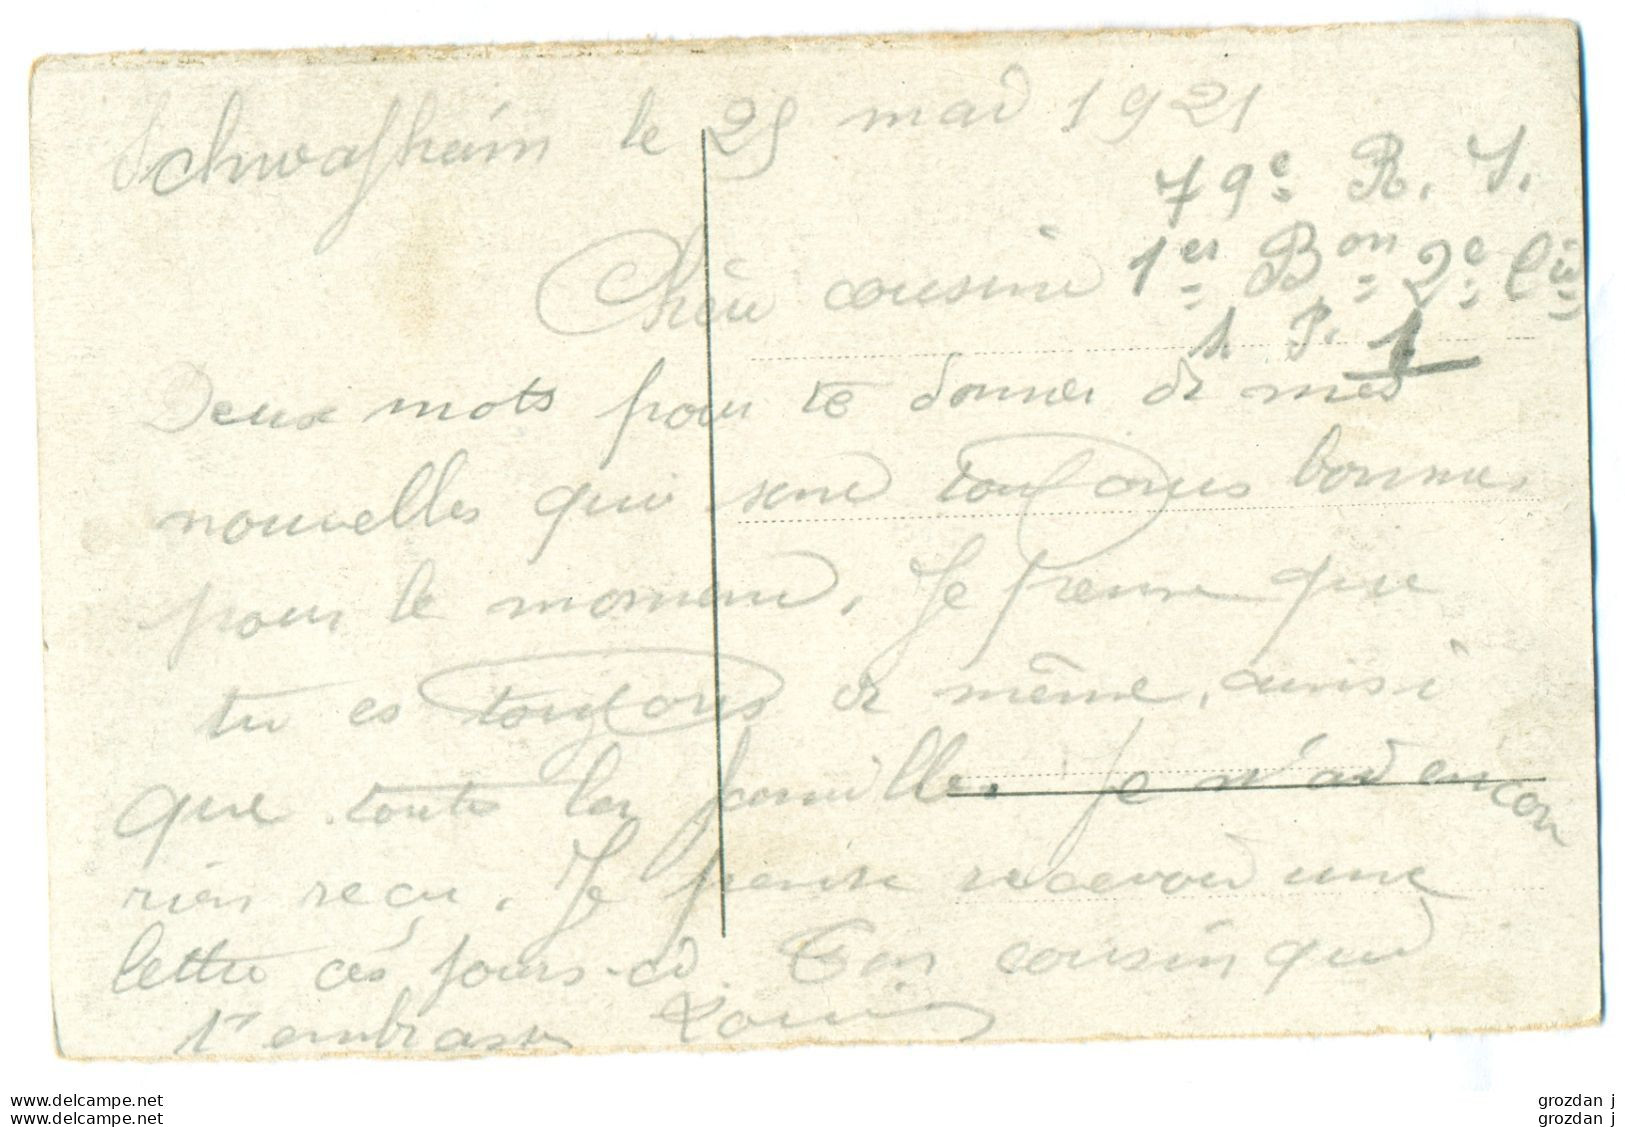 Schwafheim le 25 mai 1921
79e R. I.
1er Bon 2e Cie
1 P. 1
Chère cousine
Deux mots pour te donner de mes
nouvelles qui sont toujours bonnes
pour le moment. Je pense que
tu es toujours de même, ainsi
que toute la famille. Je n'ai encor
rien reçu. Je pense recevoir une
lettre ces jours-ci. Ton cousin qui
t'embrasse Louis
www.delcampe.net grozdan j
www.delcampe.net grozdan j